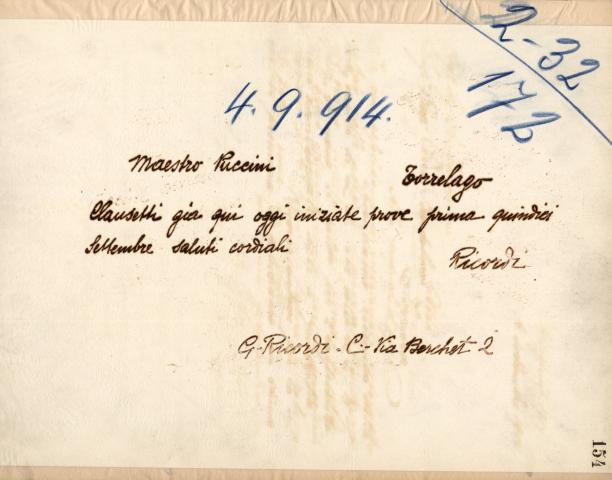 2-32
172
4.9.914.
Maestro Puccini Torrelago
Clausetti già qui oggi iniziate prove prima quindici
Settembre saluti cordiali
Ricordi
G. Ricordi - C. - Via Berchet 2
154